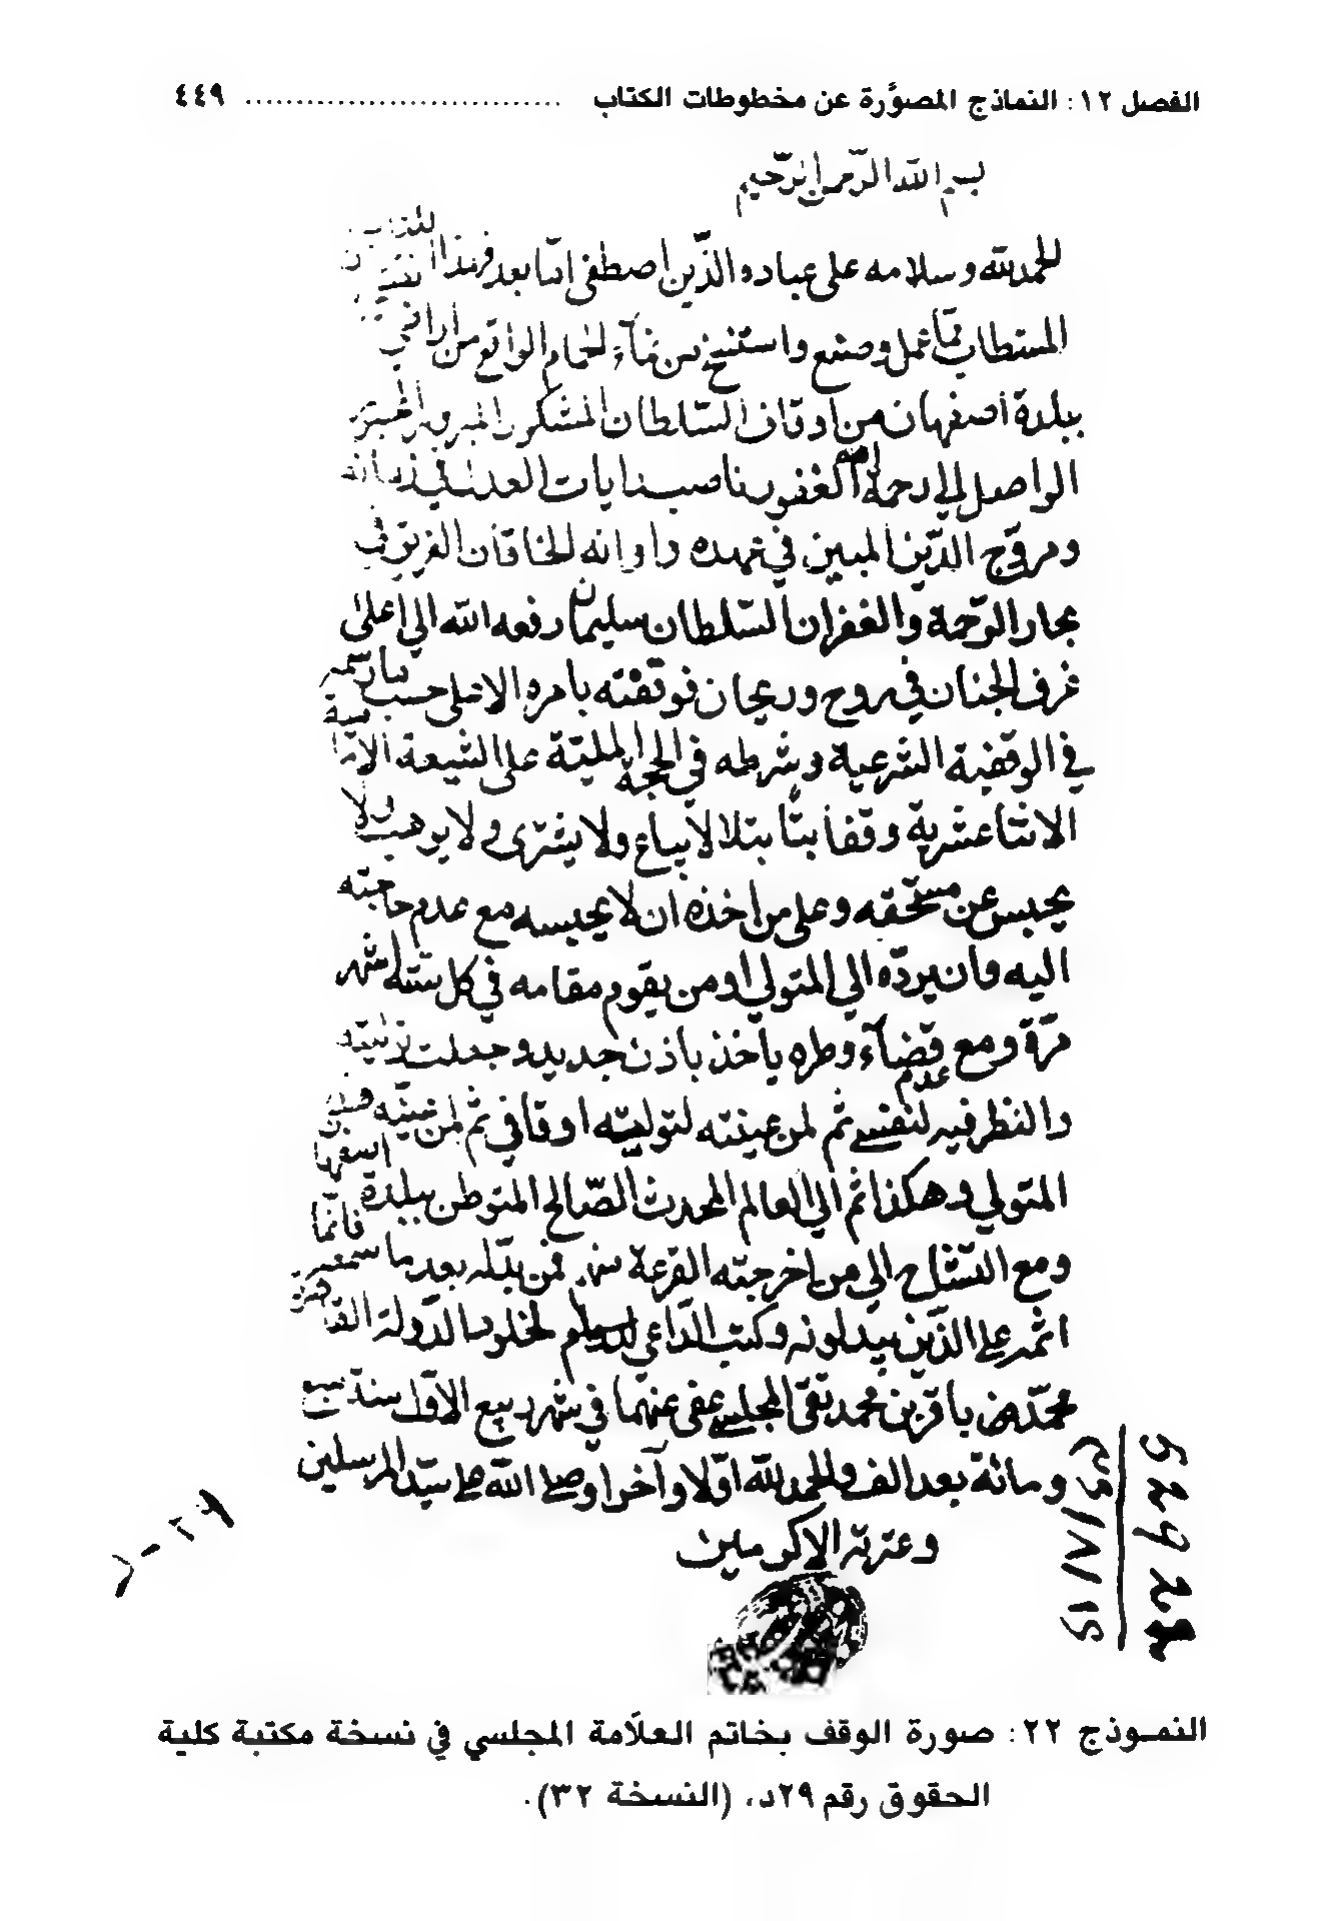 الفصل ١٢: النماذج المصوَّرة عن مخطوطات الكتاب .............................. ٤٤٩
بسم الله الرّحمن الرّحيم
الحمد لله وسلامه على عباده الذّين اصطفى امّا بعد فهذا
المستطاب ممّا عمل وصنع واستنسخ من نمآء الحمام الواقع من اراضي
ببلدة اصفهان من اوقاف السّلطان المشكور المبرور
الواصل الى رحمة الله الغفور ناصب رايات العدل في زمانه
ومروّج الدّين المبين في عهده واوانه الخاقان الغريق في
بحار الرّحمة والغفران السّلطان سليمان رفعه الله الى اعلى
غرف الجنان في روح وريحان فوقفته بامره الاعلى حسب ما رسمه
في الوقفية الشرعية وشرطه في الحجة الملية على الشيعة الاماميّة
الاثنا عشرية وقفا بتّا بتلا لا يباع ولا يشترى ولا يوهب ولا
يحبس عن مستحقه وعلى من اخذه ان لا يحبسه مع عدم حاجته
اليه وان يردّه الى المتولي او من يقوم مقامه في كل ستة اشهر
مرّة ومع عدم قضآء وطره ياخذ باذن جديد وجعلت توليته
والنظر فيه لنفسي ثم لمن عينته لتولية اوقافي ثم لمن عيّنه هذا
المتولي وهكذا ثم الى العالم المحدث الصّالح المتوطن ببلدة اصفهان
ومع التشاح الى من اخرجته القرعة منهم فمن بدّله بعد ما سمعه فانّما
اثمه على الذّين يبدلونه وكتب الدّاعي لدوام لخلود الدّولة القاهرة
محمّد باقر بن محمد تقى المجلسي عفى عنهما في شهر ربيع الاوّل سنة سبع
ومائة بعد الف والحمد لله اوّلا وآخرا وصلى الله على سيّد المرسلين
وعترته الاكرمين
النمــوذج ٢٢: صورة الوقف بخاتم العلاّمة المجلسي في نسخة مكتبة كلية
الحقوق رقم ٢٩د، (النسخة ٣٢).